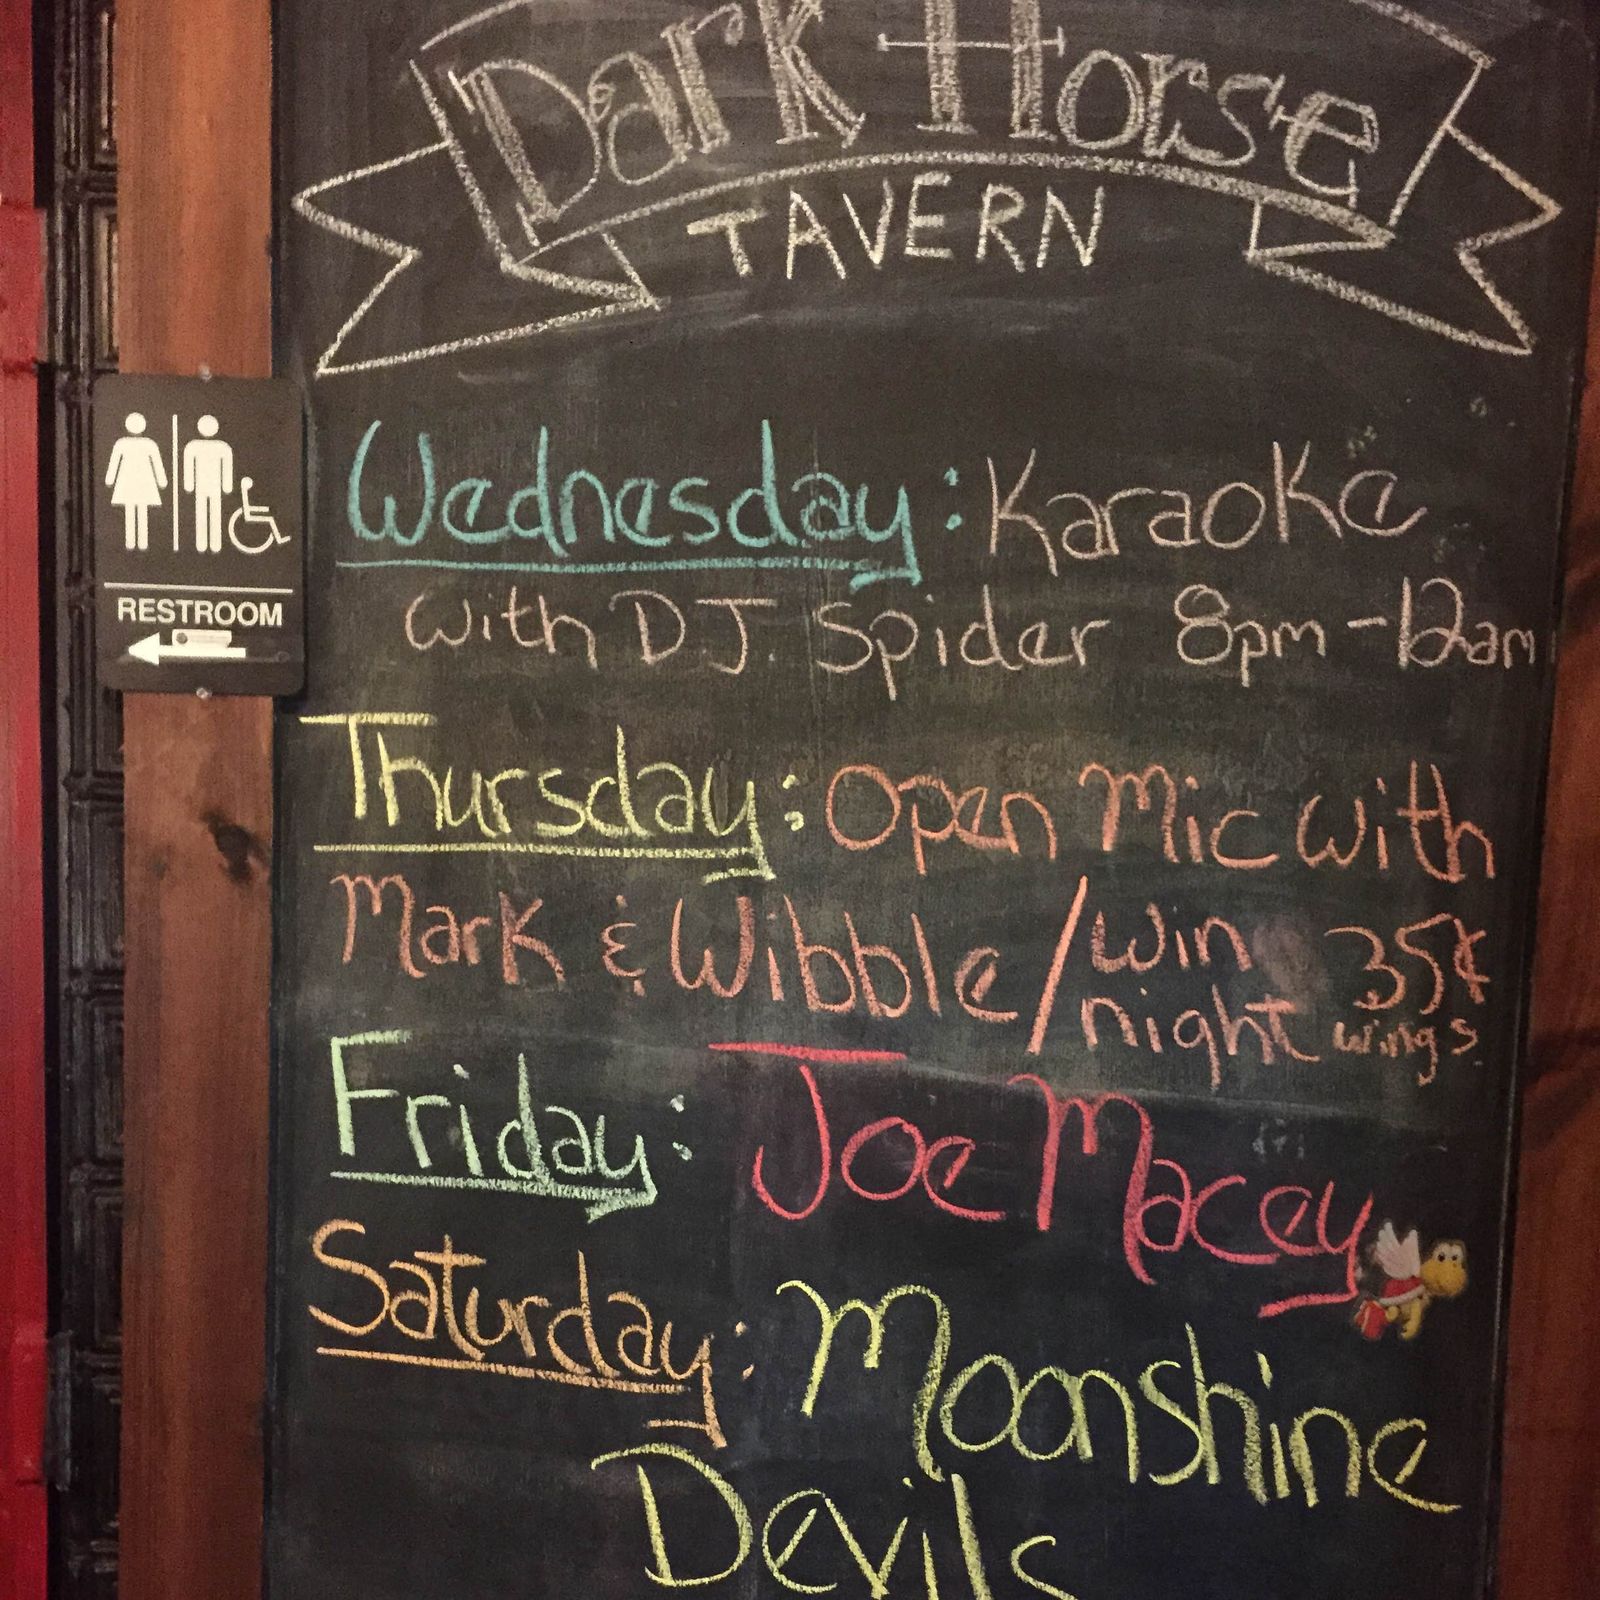 Dark Horse
TAVERN
Wednesday: Karaoke
with DJ Spider 8pm-12am
RESTROOM
Thursday: Open Mic with
Mark & Wibble / Win night 35¢ wings
Friday: Joe Macey
Saturday: Moonshine
Devils